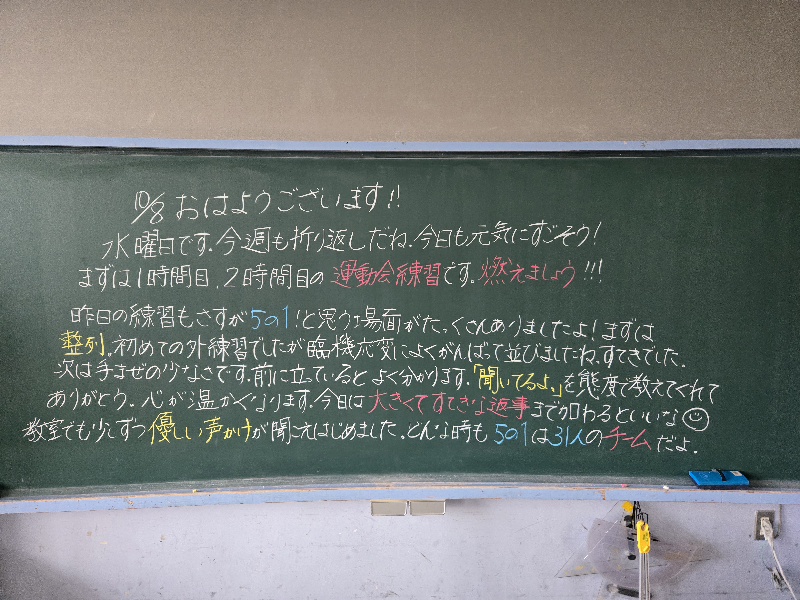 10/8 おはようございます!!
水曜日です。今週も折り返しだね。今日も元気にすごそう!
まずは1時間目、2時間目の運動会練習です。燃えましょう!!!
昨日の練習もさすが5の1!と思う場面がたっくさんありましたよ!まずは
整列。初めての外練習でしたが臨機応変によくがんばって並びましたね。すてきでした。
次は手まぜの少なさです。前に立っているとよく分かります。「聞いてるよ。」を態度で教えてくれて
ありがとう。心が温かくなります。今日は大きくてすてきな返事まで加わるといいな☺
教室でも少しずつ優しい声かけが聞こえはじめました。どんな時も5の1は31人のチームだよ。